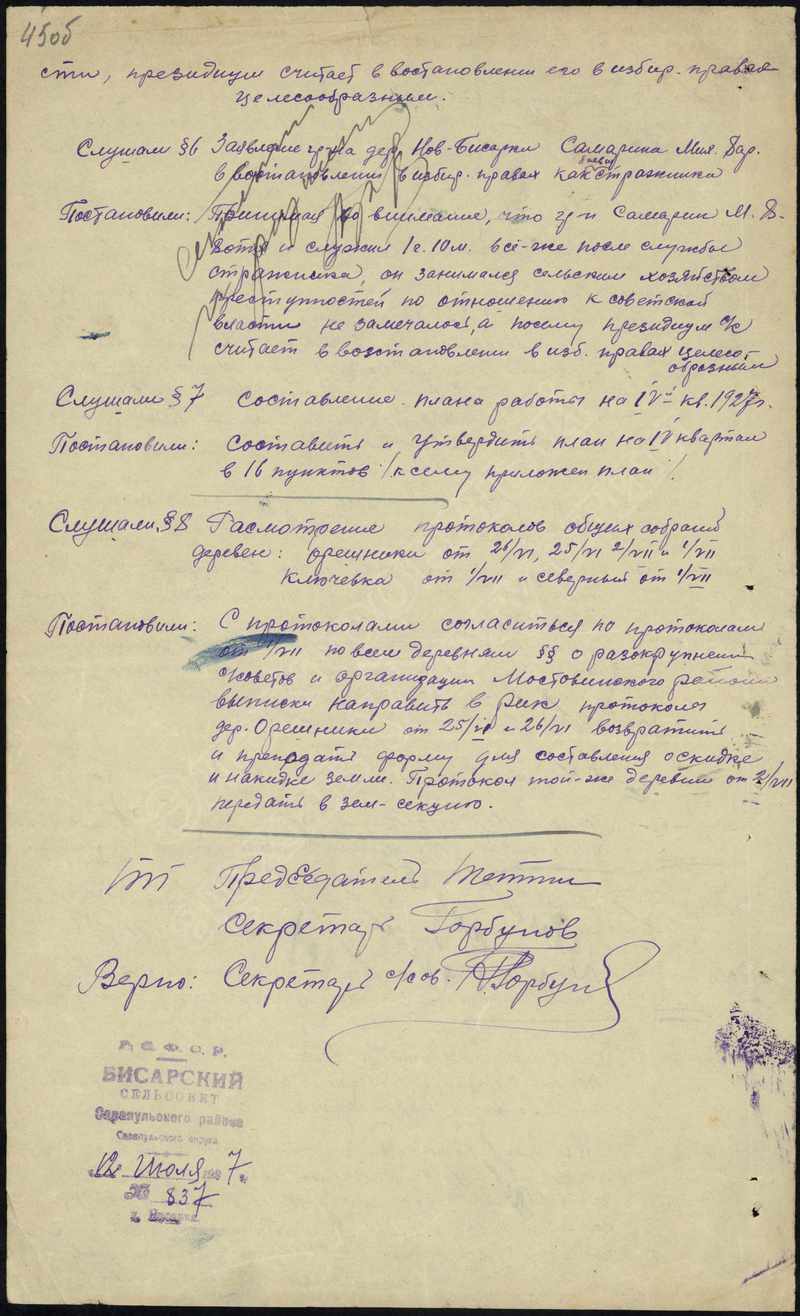 45об
сти, президиум считает в востановлении его в избир. правах
целесообразным.
Слушали §6 Заявление гр-на дер. Нов-Бисарки Самарина Мих. Вар.
в востановлении в избир. правах как бывш. стражника
Постановили: Принимая во внимание, что гр-н Самарин М. В.
хотя и служил 1 г. 10 м. всё-же после службы
стражника, он занимался сельским хозяйством
преступностей по отношению к советской
власти не замечалось, а посему президиум с/с
считает в возстановлении в изб. правах целесо-
образным
Слушали §7 Составление плана работы на IV кв. 1927 г.
Постановили: Составить и утвердить план на IV квартал
в 16 пунктов /к сему приложен план/.
Слушали §8 Расмотрение протоколов общих собраний
деревен: Орешники от 26/VI, 25/VI 2/VII и 1/VII
Ключевка от 1/VII и северный от 1/VII
Постановили: С протоколами согласиться по протоколам
от 1/VII по всем деревням §§ о разокрупнении
с/советов и организации Мостовинского района
выписки направить в Рик протокола
дер. Орешники от 25/VI и 26/VI возвратить
и преподать форму для составления о скидке
и накидке земли. Протокол той-же деревни от 2/VII
передать в зем-секцию.
Председатель
Секретарь Горбунов
Верно: Секретарь с/сов. Горбун
Р. С. Ф. С. Р.
БИСАРСКИЙ
СЕЛЬСОВЕТ
Сарапульского района
Сарапульского округа
12 Июля 1927 г.
№ 837